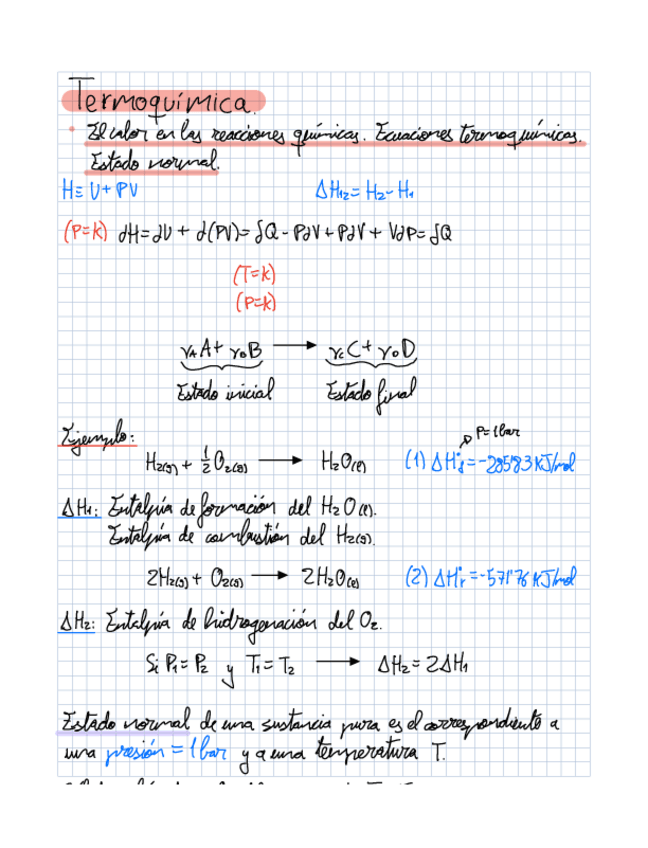 Termoquímica.
• El calor en las reacciones químicas. Ecuaciones termoquímicas.
Estado normal.
H ≡ U + PV ΔH₁₂ = H₂ - H₁
(P=k) dH = dU + d(PV) = δQ - PdV + PdV + VdP = δQ
(T=k)
(P=k)
γA A + γB B ⟶ γC C + γD D
Estado inicial Estado final
Ejemplo: P=1bar
H₂(g) + 1/2 O₂(g) ⟶ H₂O(l) (1) ΔH°f = -285'83 KJ/mol
ΔH₁: Entalpía de formación del H₂O(l).
Entalpía de combustión del H₂(g).
2H₂(g) + O₂(g) ⟶ 2H₂O(l) (2) ΔH°r = -571'76 KJ/mol
ΔH₂: Entalpía de hidrogenación del O₂.
Si P₁ = P₂ y T₁ = T₂ ⟶ ΔH₂ = 2ΔH₁
Estado normal de una sustancia pura es el correspondiente a
una presión = 1 bar y a una temperatura T.